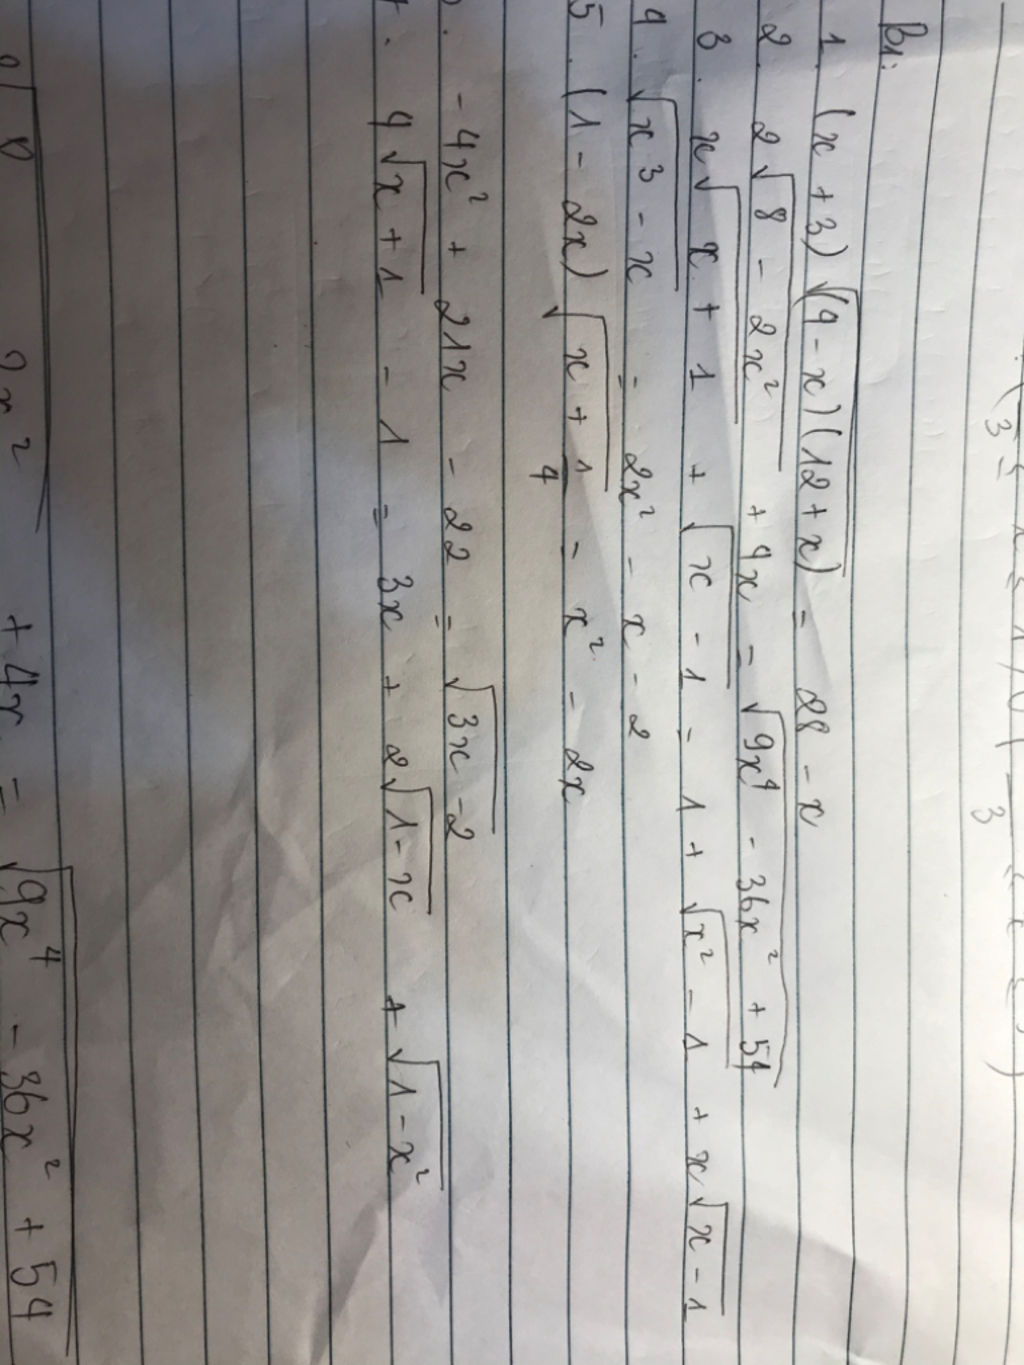 B1:
1. (x + 3) √(4 - x)(12 + x) = 28 - x
2. 2√8 - 2x² + 4x = √9x⁴ - 36x² + 54
3. x√x + 1 + √x - 1 = 1 + √x² - 1 + x√x - 1
4. √x³ - x = 2x² - x - 2
5. (1 - 2x) √x + 1/4 = x² - 2x
- 4x² + 21x - 22 = √3x - 2
4√x + 1 - 1 = 3x + 2√1 - x + √1 - x²
+ 4x = √9x⁴ - 36x² + 54